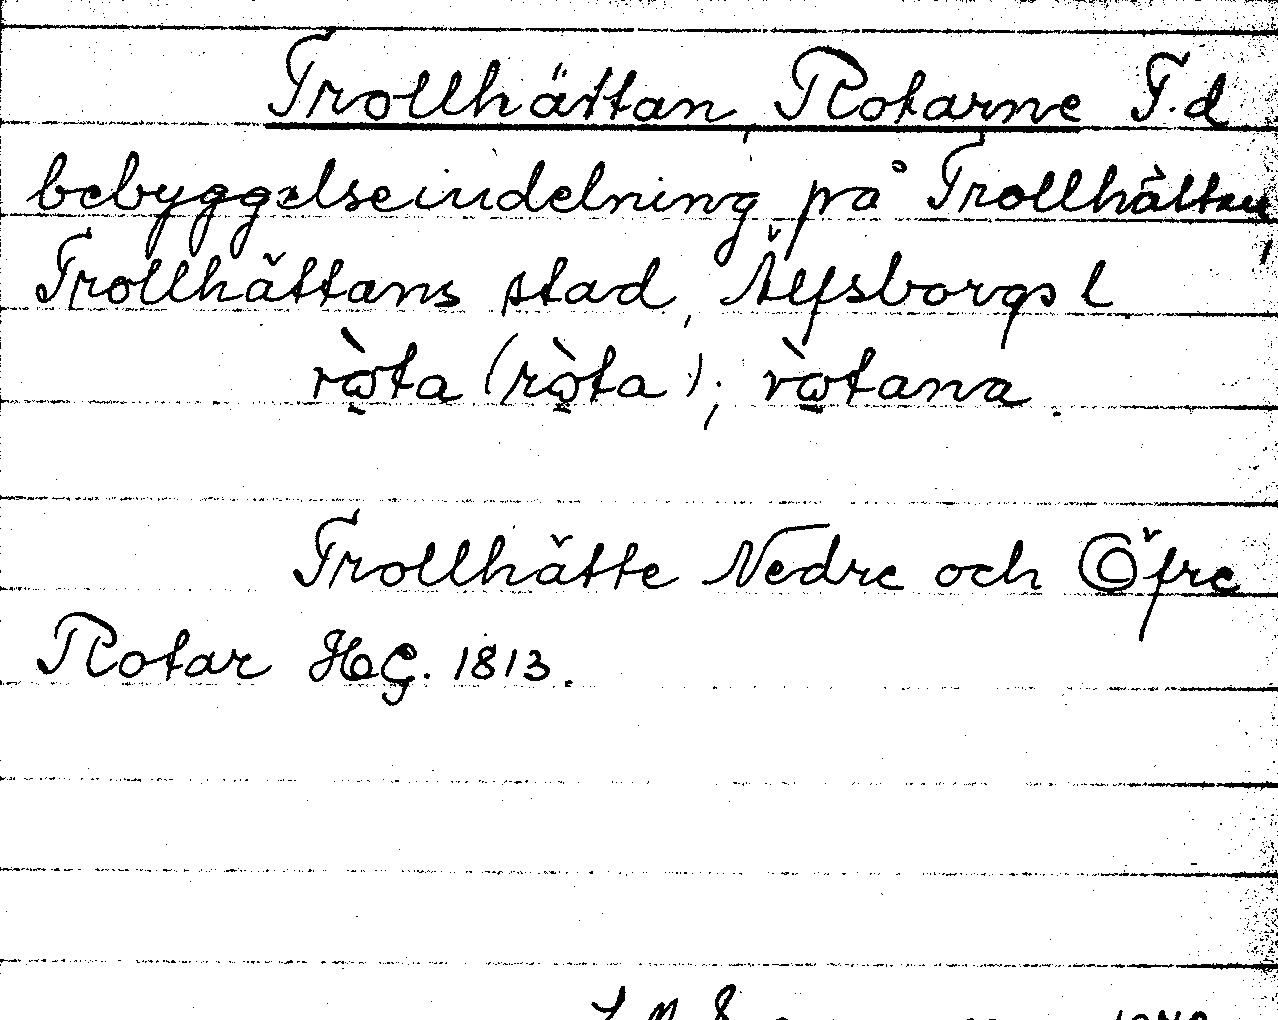 Trollhättan, Rotarne F.d
bebyggelseindelning på Trollhättan,
Trollhättans stad, Älfsborgs l.
rὼ̬ta (rò̬ta); rὼ̬tana.
Trollhätte Nedre och Öfre
Rotar HG. 1813.